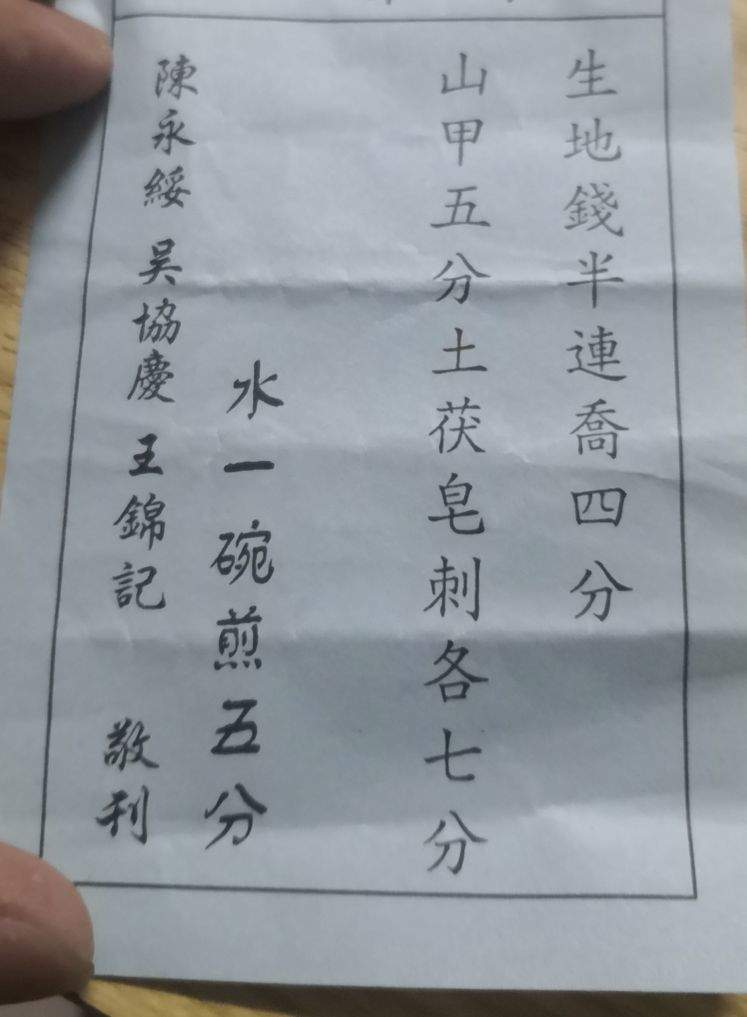 生地錢半連喬四分
山甲五分土茯皂刺各七分
水一碗煎五分
陳永綏 吳協慶 王錦記 敬刊